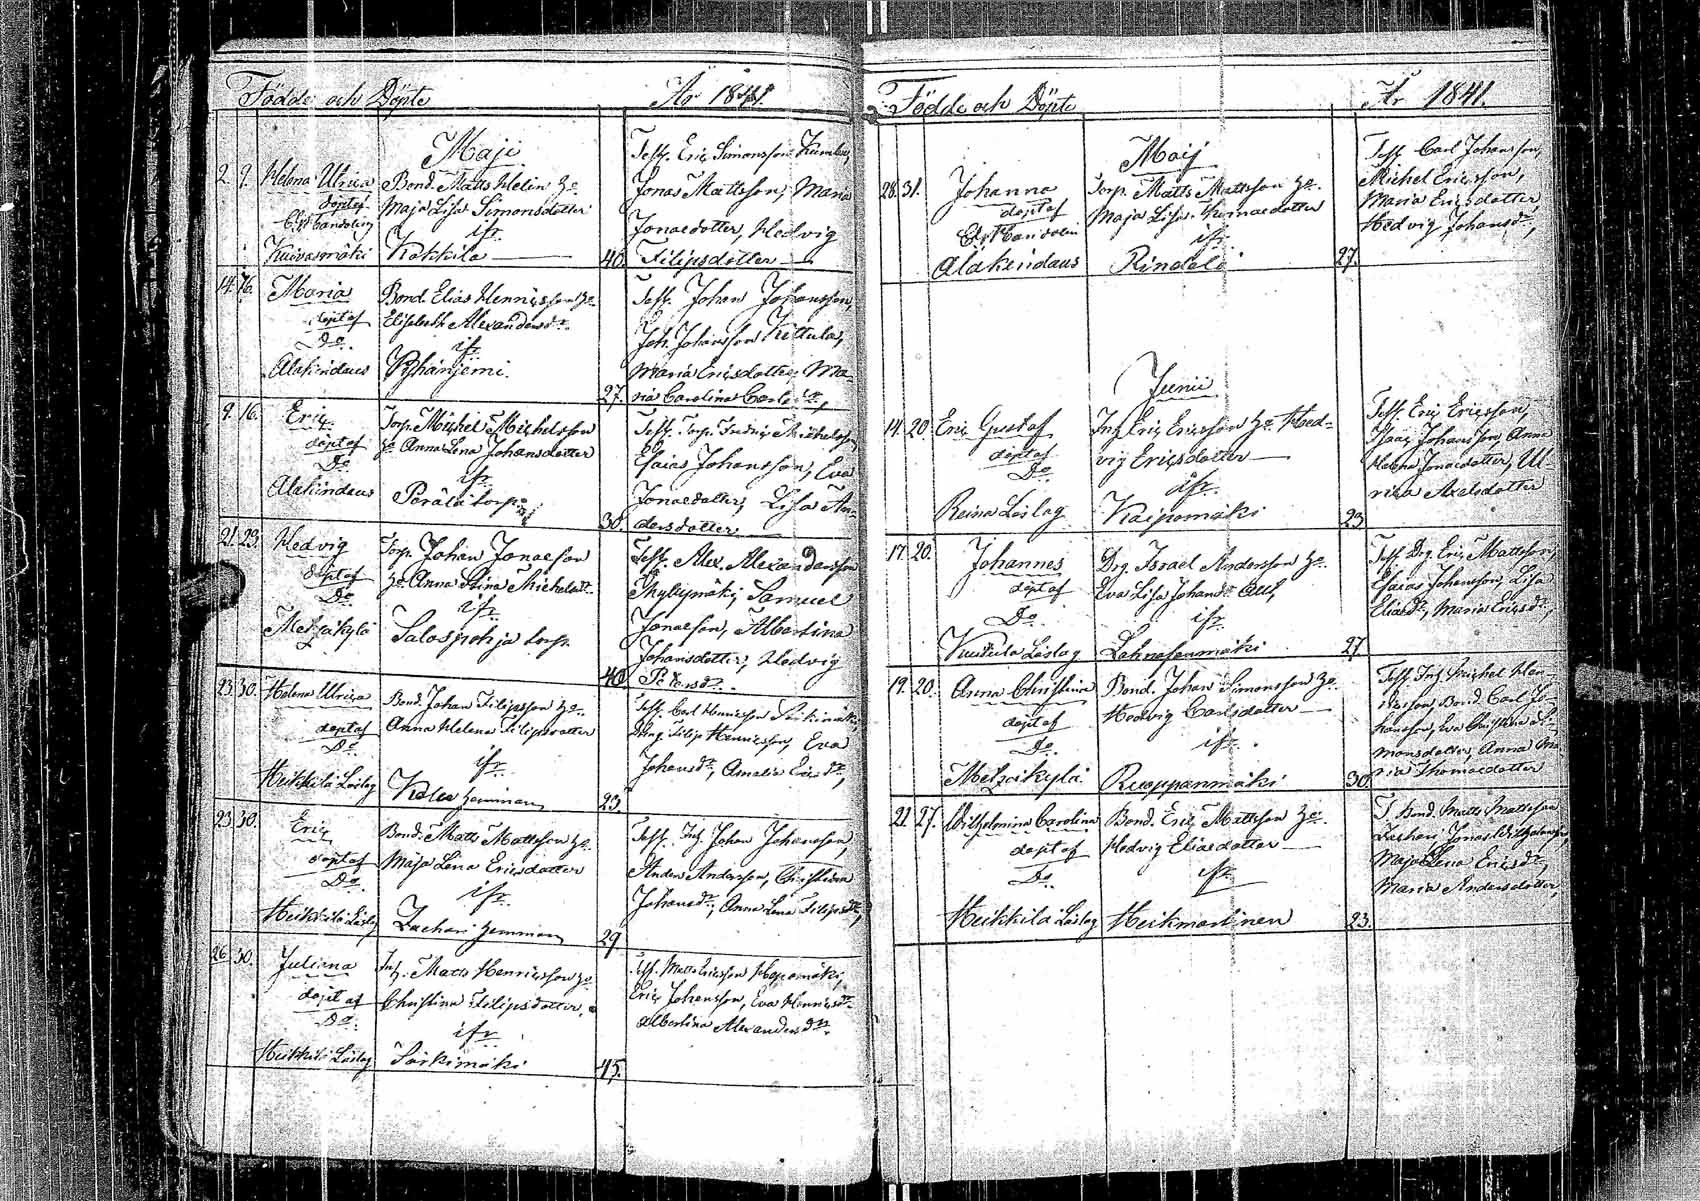 Födde och Döpte År 1841.
Maji
2. 9. Helena Ulrica
döpt af
Kuivasmäki
Bond. Matts Helin h.
Maja Lisa Simonsdotter
ifr
Kokkila
40.
Test. Eric Simonsson
Jonas Mattsson, Maria
Jonaedotter, Hedvig
Filipsdotter
14. 16. Maria
döpt af
Do.
Alakeidaus
Bond. Elias Henricsson
Elisabeth Alexandersdr
ifr
27.
Test. Johan Johansson,
Joh. Johansson Kittula,
Maria Ericsdotter, Ma-
ria Carolina Carlsdr,
9. 16. Eric
döpt af
Do
Alakeidaus
Torp. Michel Michelsson
Anna Lena Johansdotter
ifr
Perälä torp
30.
Test. Torp. Fredric Michelsson
Esaias Johansson, Eva
Jonaedotter, Lisa An-
dersdotter
21. 23. Hedvig
döpt af
Do
Metzäkylä
Torp. Johan Jonaeson
Anna Stina Michelsdr
ifr
Salospohja torp
40
Test. Alex. Alexandersson
Myllymäki, Samuel
Jonaeson, Albertina
Johansdotter, Hedvig
Petersdr.
23. 30. Helena Ulrica
döpt af
Do
Heikkilä Låslag
Bond. Johan Filipsson
Anna Helena Filipsdotter
ifr
Kalus hemman
23.
Test. Carl Henricsson Särkimäki,
Filip Henricsson, Eva
Johansdr, Amalia Ericsdr,
23 30. Eric
döpt af
Do.
Heikkilä Låslag
Bond. Matts Mattsson
Maja Lena Ericsdotter
ifr
Zachari hemman
29
Test. Inh. Johan Johansson,
Anders Andersson, Christina
Johansdr, Anna Lena Filipsdr,
26. 30. Juliana
döpt af
Do.
Heikkilä Låslag
Inh. Matts Henricsson
Christina Filipsdotter.
ifr
Särkimäki
45.
Test. Matts Ericsson Hepomäki,
Eric Johansson, Eva Henricsdr
Albertina Alexandersdr
Födde och Döpte År 1841.
Maij
28. 31. Johanna
döpt af
Alakeidaus
Torp. Matts Mattsson
Maja Lisa Thomaedotter
ifr
Rindala
27.
Test. Carl Johansson,
Michel Ericsson,
Maria Ericsdotter,
Hedvig Johansdr,
Junii
14. 20. Eric Gustaf
döpt af
Do
Reina Låslag
Inh. Eric Ericsson Hed-
vig Ericsdotter
ifr.
Kaipomäki
23
Test. Eric Ericsson,
Isaac Johansson, Anna
Helena Jonaedotter, Ul-
rica Axelsdotter
17. 20. Johannes
döpt af
Do.
Vuutula Låslag
Drg. Israel Andersson
Eva Lisa Johansdr
ifr
Lahnasenmäki
27
Test. Drg. Eric Mattsson,
Esaias Johansson, Lisa
Eliasdr, Maria Ericsdr,
19. 20. Anna Christina
döpt af
Do.
Metzäkylä
Bond. Johan Simonsson
Hedvig Carlsdotter
ifr.
Ruoppanmäki
30.
Test. Inh. Michel Hen-
ricsson, Bond. Carl Jo-
hansson, Eva Christina Si-
monsdotter, Anna Ma-
ria Thomaedotter
21 27. Wilhelmina Carolina
döpt af
Do.
Heikkilä Låslag
Bond. Eric Mattsson
Hedvig Eliasdotter
ifr
Heikmartinen
23.
T. Bond. Matts Mattsson
Zachari, Jonas Wilhelmsson,
Maja Lena Ericsdr,
Maria Andersdotter,